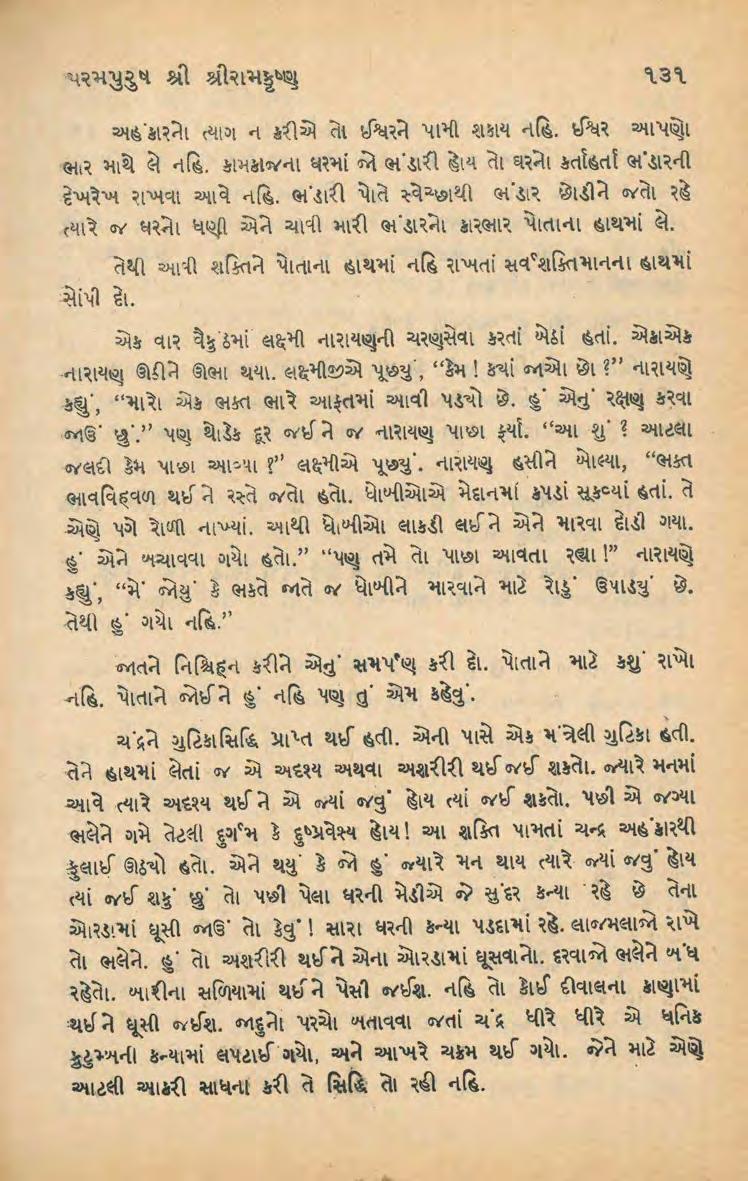 પરમપુરુષ શ્રી શ્રીરામકૃષ્ણ ૧૩૧
અહંકારનો ત્યાગ ન કરીએ તો ઈશ્વરને પામી શકાય નહિ. ઈશ્વર આપણો
ભાર માથે લે નહિ. કામકાજના ઘરમાં જો ભંડારી હોય તો ઘરનો કર્તાહર્તા ભંડારની
દેખરેખ રાખવા આવે નહિ. ભંડારી પોતે સ્વેચ્છાથી ભંડાર છોડીને જતો રહે
ત્યારે જ ઘરનો ધણી એને ચાવી મારી ભંડારનો કારભાર પોતાના હાથમાં લે.
તેથી આવી શક્તિને પોતાના હાથમાં નહિ રાખતાં સર્વશક્તિમાનના હાથમાં
સોંપી દો.
એક વાર વૈકુંઠમાં લક્ષ્મી નારાયણની ચરણસેવા કરતાં બેઠાં હતાં. એકાએક
નારાયણ ઊઠીને ઊભા થયા. લક્ષ્મીજીએ પૂછયું, “કેમ ! કયાં જાઓ છો ?” નારાયણે
કહ્યું, “મારો એક ભક્ત ભારે આફતમાં આવી પડયો છે. હું એનું રક્ષણ કરવા
જાઉં છું.” પણ થોડેક દૂર જઈને જ નારાયણ પાછા ફર્યા. “આ શું ? આટલા
જલદી કેમ પાછા આવ્યા ?” લક્ષ્મીએ પૂછયું. નારાયણ હસીને બોલ્યા, “ભક્ત
ભાવવિહવળ થઈને રસ્તે જતો હતો. ધોબીઓએ મેદાનમાં કપડાં સૂકવ્યાં હતાં. તે
એણે પગે રોળી નાખ્યાં. આથી ધોબીઓ લાકડી લઈને એને મારવા દોડી ગયા.
હું એને બચાવવા ગયો હતો.” “પણ તમે તો પાછા આવતા રહ્યા !” નારાયણે
કહ્યું, “મેં જોયું કે ભક્તે જાતે જ ધોબીને મારવાને માટે રોડું ઉપાડયું છે.
તેથી હું ગયો નહિ.”
જાતને નિશ્ચિહ્ન કરીને એનું સમર્પણ કરી દો. પોતાને માટે કશું રાખો
નહિ. પોતાને જોઈને હું નહિ પણ તું એમ કહેવું.
ચંદ્રને ગુટિકાસિદ્ધિ પ્રાપ્ત થઈ હતી. એની પાસે એક મંત્રેલી ગુટિકા હતી.
તેને હાથમાં લેતાં જ એ અદશ્ય અથવા અશરીરી થઈ જઈ શકતો. જ્યારે મનમાં
આવે ત્યારે અદશ્ય થઈને એ જ્યાં જવું હોય ત્યાં જઈ શકતો. પછી એ જગ્યા
ભલેને ગમે તેટલી દુર્ગમ કે દુષ્પ્રવેશ્ય હોય! આ શક્તિ પામતાં ચન્દ્ર અહંકારથી
ફુલાઈ ઊઠયો હતો. એને થયું કે જો હું જ્યારે મન થાય ત્યારે જ્યાં જવું હોય
ત્યાં જઈ શકું છું તો પછી પેલા ઘરની મેડીએ જે સુંદર કન્યા રહે છે તેના
ઓરડામાં ઘૂસી જાઉં તો કેવું ! સારા ઘરની કન્યા પડદામાં રહે. લાજમલાજો રાખે
તો ભલેને. હું તો અશરીરી થઈને એના ઓરડામાં ઘૂસવાનો. દરવાજો ભલેને બંધ
રહેતો. બારીના સળિયામાં થઈને પેસી જઈશ. નહિ તો કોઈ દીવાલના કાણામાં
થઈને ઘૂસી જઈશ. જાદુનો પરચો બતાવવા જતાં ચંદ્ર ધીરે ધીરે એ ધનિક
કુટુમ્બની કન્યામાં લપટાઈ ગયો, અને આખરે ચક્રમ થઈ ગયો. જેને માટે એણે
આટલી આકરી સાધના કરી તે સિદ્ધિ તો રહી નહિ.